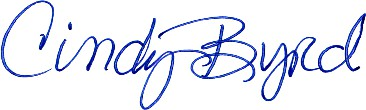 Cindy Byrd